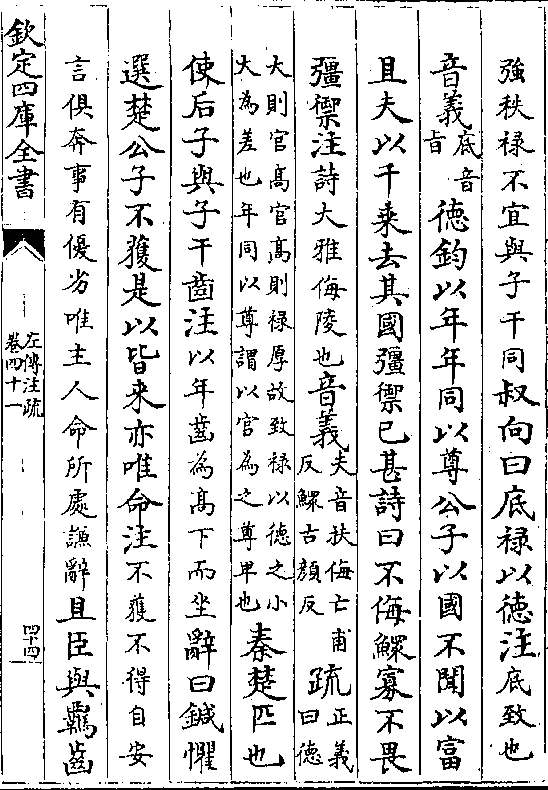 強秩禄不宜與子干同叔向曰底禄以徳注底致也
音義底音旨徳鈞以年年同以尊公子以國不聞以富
且夫以千乘去其國彊禦已甚詩曰不侮鰥寡不畏
彊禦注詩大雅侮陵也音義夫音扶侮亡甫反鰥古顔反疏正義曰德
大則官高官高則禄厚故致禄以德之小大為差也年同以尊謂以官為之尊卑也秦楚匹也
使后子與子干齒注以年齒為高下而坐辭曰鍼懼
選楚公子不獲是以皆来亦唯命注不獲不得自安
言俱奔事有優劣唯主人命所處謙辭且臣與羈齒
欽定四庫全書
左傳注疏
卷四十一
四十四